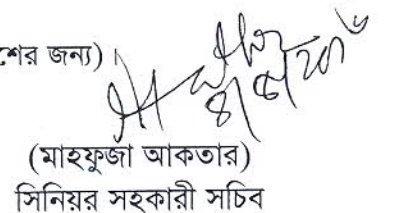 শের জন্য) ।
(মাহফুজা আকতার)
সিনিয়র সহকারী সচিব